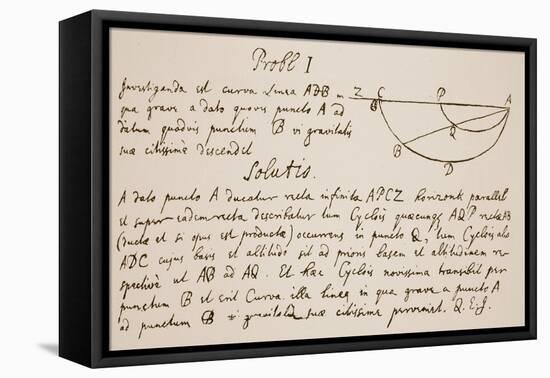 Probl I
Investiganda est curva Linea ADB in
qua grave a dato quovis puncto A ad
datum quodvis punctum B vi gravitatis
suæ citissimè descendet
Z C P A
B Q
B
D
Solutio.
A dato puncto A ducatur recta infinita APCZ horizonti parallela
et super eadem recta describatur tum Cyclois quæcunqꝫ AQP rectæ AB
(ductæ et si opus est productæ) occurrens in puncto Q, tum Cyclois alia
ADC cujus basis et altitudo sit ad prioris basem et altitudinem re-
spectivè ut AB ad AQ. Et hæc Cyclois novissima transibit per
punctum B et erit Curva illa linea in qua grave a puncto A
ad punctum B vi gravitatis suæ citissimè perveniet. Q.E.I.